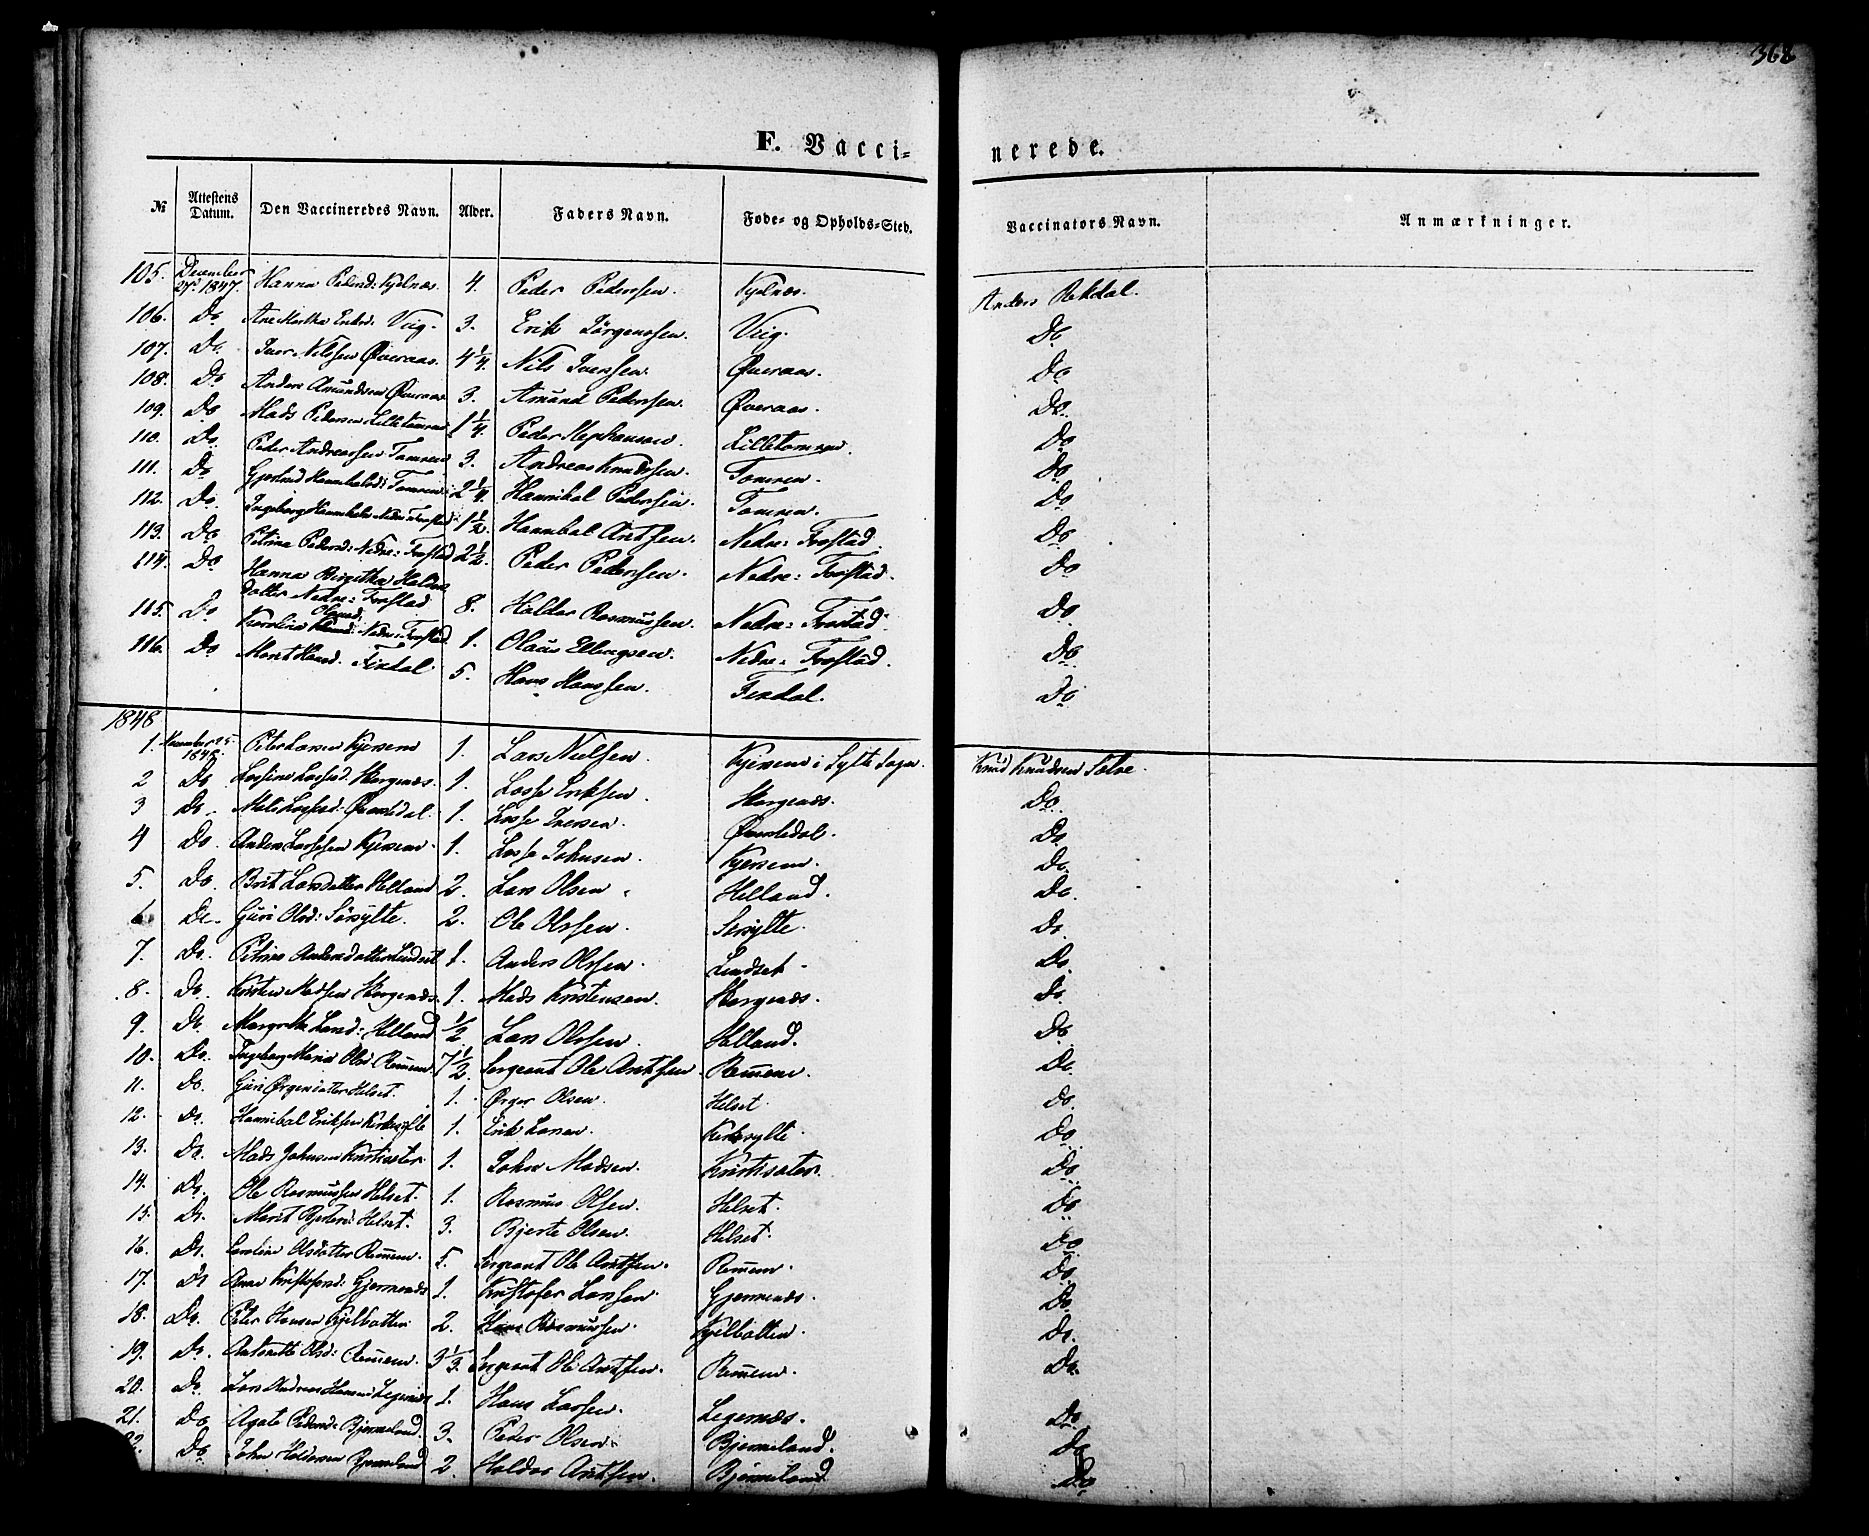 368
F. Vacci=
nerede.
№ Attestens Datum. Den Vaccineredes Navn. Alder. Faders Navn. Føde= og Opholds=Sted. Vaccinators Navn. Anmærkninger.
105. December 27. 1847. Hanna Pedersd: Kjelnæs. 4. Peder Pederssen. Kjelnæs. Anders Rekdal.
106. Do Ane Martha Eriksd: Veig. 3. Erik Jørgenssen. Veig. Do
107. Do. Iver Nilssen Øveraas. 4 1/4. Nils Iverssen. Øveraas. Do
108. Do Anders Amundsen Øveraas 3. Amund Pederssen. Øveraas. Do.
109. Do Mads Pedersen Lilletomren 1 1/4. Peder Stephansen. Lilletomren. Do
110. Do Peder Andreassen Tomren 3. Andreas Knudssen. Tomren. Do
111. Do Gjertrud Hannibalsd: Tomren. 2 1/4. Hannibal Pederssen. Tomren. Do
112. Do. Ingeborg Hannibalsd Nedre: Frostad 1 1/2. Hannibal Antssen. Nedre: Frostad. Do
113. Do Petrina Pedersd: Nedre: Frostad 2 1/2. Peder Pederssen. Nedre: Frostad. Do
114. Do Hanna Birgitha Haldor
datter Nedre: Frostad 8. Haldor Rasmussen. Nedre: Frostad. Do
115. Do Karolina Olausd: Nedre: Frostad 1. Olaus Ellingsen. Nedre: Frostad. Do
116. Do Marit Hansd. Tindal. 5. Hans Hanssen. Tindal. Do
1848
1. November 25 1848. Peter Larsen Kjersem 1. Lars Nielsen. Kjersem i Sylte Sogn. Knud Knudsen Solve.
2 Do. Lassine Lassed. Horgenæs. 1. Lasse Eriksen. Horgenæs. Do
3 Do. Mali Lassed: Øverdal. 1. Lasse Iversen. Øverdal. Do
4 Do. Anders Lassesen Kjersem. 1. Lasse Johnsen. Kjersem. Do
5. Do. Brit Larsdatter Helland 2. Lars Olsen. Helland. Do.
6 Do. Guri Olsd: Sørsylte. 2. Ole Olssen. Sørsylte. Do.
7. Do. Petrine Andersdatter Lindset 1. Anders Olssen. Lindset. Do.
8. Do. Kristen Madsen Horgenæs. 1. Mads Kristensen. Horgenæs. Do.
9. Do. Margrethe Larsd: Helland 1/2 Lars Olssen. Helland. Do
10. Do. Ingeborg Maria Olsd Remmem. 7 1/2. Sergeant Ole Antssen. Remmem. Do
11. Do. Guri Ørgersdatter Helset. 1. Ørger Olsen. Helset. Do.
12. Do. Hannibal Eriksen Kirkesylte 1. Erik Larsen. Kirkesylte. Do
13. Do. Mads Johnsen Kristisæter. 1. John Madsen. Kristisæter. Do
14. Do. Ole Rasmussen Helset. 1. Rasmus Olsen. Helset. Do
15. Do. Marit Bjertesd: Helset. 3. Bjerte Olsen. Helset. Do
16. Do. Caroline Olsdatter Remmem. 5. Sergeant Ole Antssen. Remmem. Do.
17. Do Anne Kristofersd: Gjermenæs 1. Kristofer Larssen. Gjermenæs. Do
18. Do. Peter Hansen Kjelbotten 2. Hans Rasmussen. Kjelbotten. Do.
19. Do. Antonette Olsd: Remmem. 3 1/3. Sergeant Ole Antssen. Remmem. Do.
20. Do. Lars Andreas Hansen Legernæs 1. Hans Larssen. Legernæs. Do
21. Do Agate Pedersd: Bjermeland. 3. Peder Olsen. Bjermeland. Do
22. Do John Haldorsen Bjermeland 2. Haldor Antssen. Bjermeland. Do